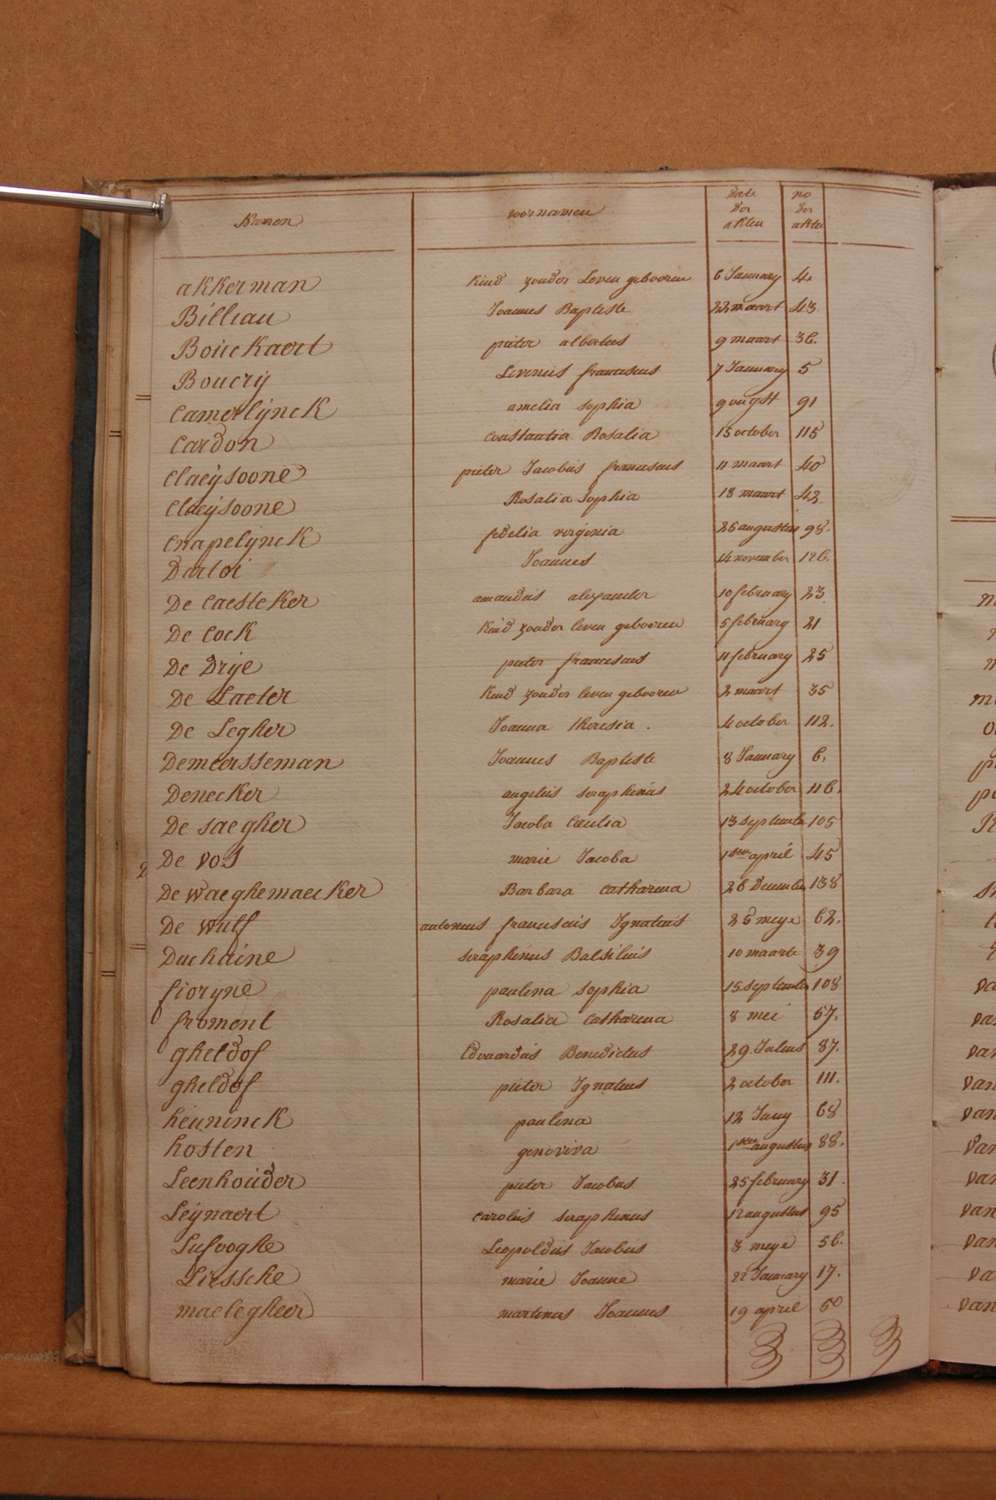 Namen voornamen Date Der akten no Der akten
akkerman kind zonder Leven gebooren 6 January 4.
Billiau Joannes Baptiste 22 maart 43
Bouckaert pieter albertus 9 maart 36.
Boucrij Livinus franciscus 7 January 5
Camerlijnck amelia sophia 9 ougst 91
Cardon Constantia Rosalia 15 october 115
Claeijsoone pieter Jacobus franciscus 11 maart 40
Claeijsoone Rosalia Sophia 18 maart 42.
Crapelijnck fidelia virginia 26 augustus 98.
Dartoi Joannes 14 november 126.
De Caesteker amandus alexander 10 february 23.
De Cock kind zonder leven gebooren 5 february 21
De Drije pieter franciscus 11 february 25
De Laeter kind zonder leven gebooren 2 maart 35
De Legher Joanna theresia. 4 october 112.
Demeersseman Joannes Baptiste 8 January 6.
Denecker angelus seraphinus 24 october 116.
De saegher Jacoba Cecilia 13 septembr 105
De vos marie Jacoba 1sten april 45
De waeghemaecker Barbara catharina 26 Decembr 138
De wulf antonius franciscus Ignatius 26 meye 62.
Duchaine seraphinus Balsilius 10 maarte 39
fioryne paulina sophia 15 septembr 108
froment Rosalia catharina 8 mei 57.
gheldof Edvaardus Benedictus 29 Julius 87.
gheldof pieter Ignatius 2 october 111.
heuninck paulina 12 Juny 68
hosten genoviva 1sten augustus 88.
Leenhouder pieter Jacobus 25 february 31.
Leijnaert carolus seraphinus 12 augustus 95
Lufvoghe Leopoldus Jacobus 3 meye 56.
Liessche marie Joanne 22 January 17.
maelegheer martinus Joannes 19 april 50